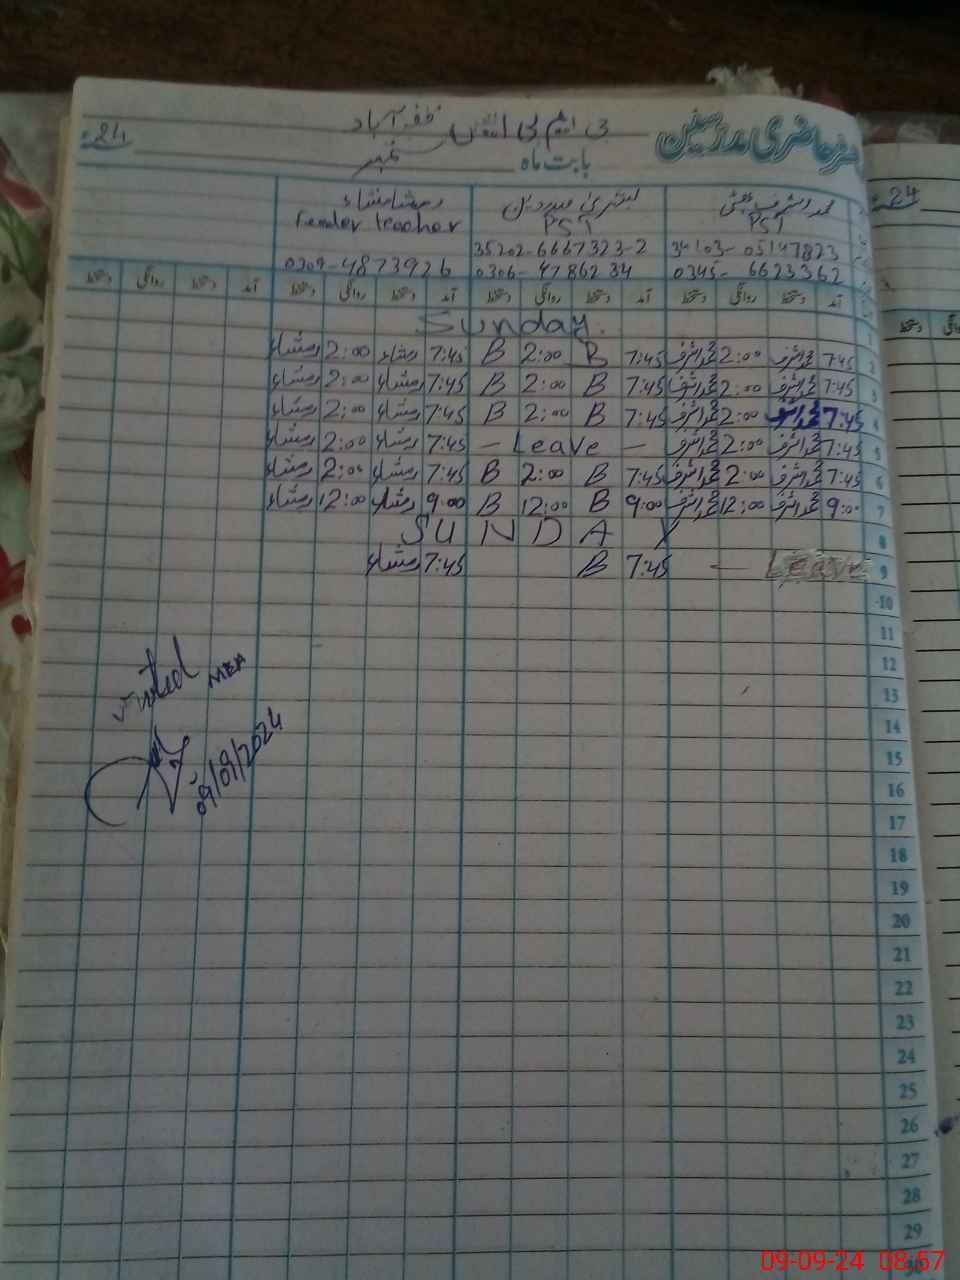 24ء
جی ایم پی
ظفر آباد
رجسٹر حاضری مدرسین
بابت ماہ ستمبر
24ء
محمد اشرف PST
34103-05147823
0345-6623362
بشریٰ
PST
35202-6667323-2
0306-4786234
رمشا منشاء
Feeder teacher
0309-4873926
آمد دستخط روانگی دستخط آمد دستخط روانگی دستخط آمد دستخط روانگی دستخط آمد دستخط روانگی دستخط
1 Sunday
2 7:45 محمد اشرف 2:00 محمد اشرف 7:45 B 2:00 B 7:45 رمشاء 2:00 رمشاء
3 7:45 محمد اشرف 2:00 محمد اشرف 7:45 B 2:00 B 7:45 رمشاء 2:00 رمشاء
4 7:45 محمد اشرف 2:00 محمد اشرف 7:45 B 2:00 B 7:45 رمشاء 2:00 رمشاء
5 7:45 محمد اشرف 2:00 محمد اشرف — Leave — 7:45 رمشاء 2:00 رمشاء
6 7:45 محمد اشرف 2:00 محمد اشرف 7:45 B 2:00 B 7:45 رمشاء 2:00 رمشاء
7 9:00 محمد اشرف 12:00 محمد اشرف 9:00 B 12:00 B 9:00 رمشاء 12:00 رمشاء
8 SUNDAY
9 Leave — 7:45 B 7:45 رمشاء
10
11
12
13
14
15
16
17
18
19
20
21
22
23
24
25
26
27
28
29
30
visited MEA
09/09/2024
09-09-24 08:57